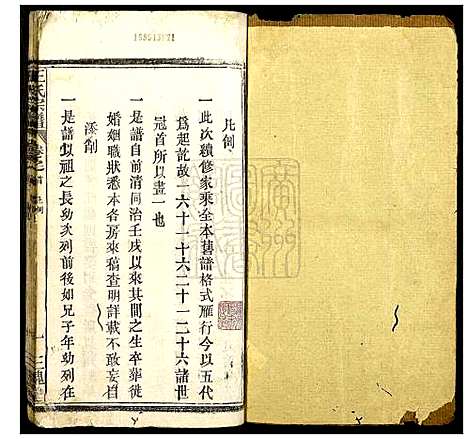 凡例
一此次續修家乘全本舊譜格式雁行今以五代
爲起訖故一六十一十六二十一二十六諸世
冠首所以晝一也
一是譜自前清同治壬戌以來其間之生卒葬徙
婚姻職狀悉本各房來稿查明詳載不敢妄
添創
一是譜以祖之長幼次列前後如兄子年幼列在
王氏宗譜
卷之
一
三槐